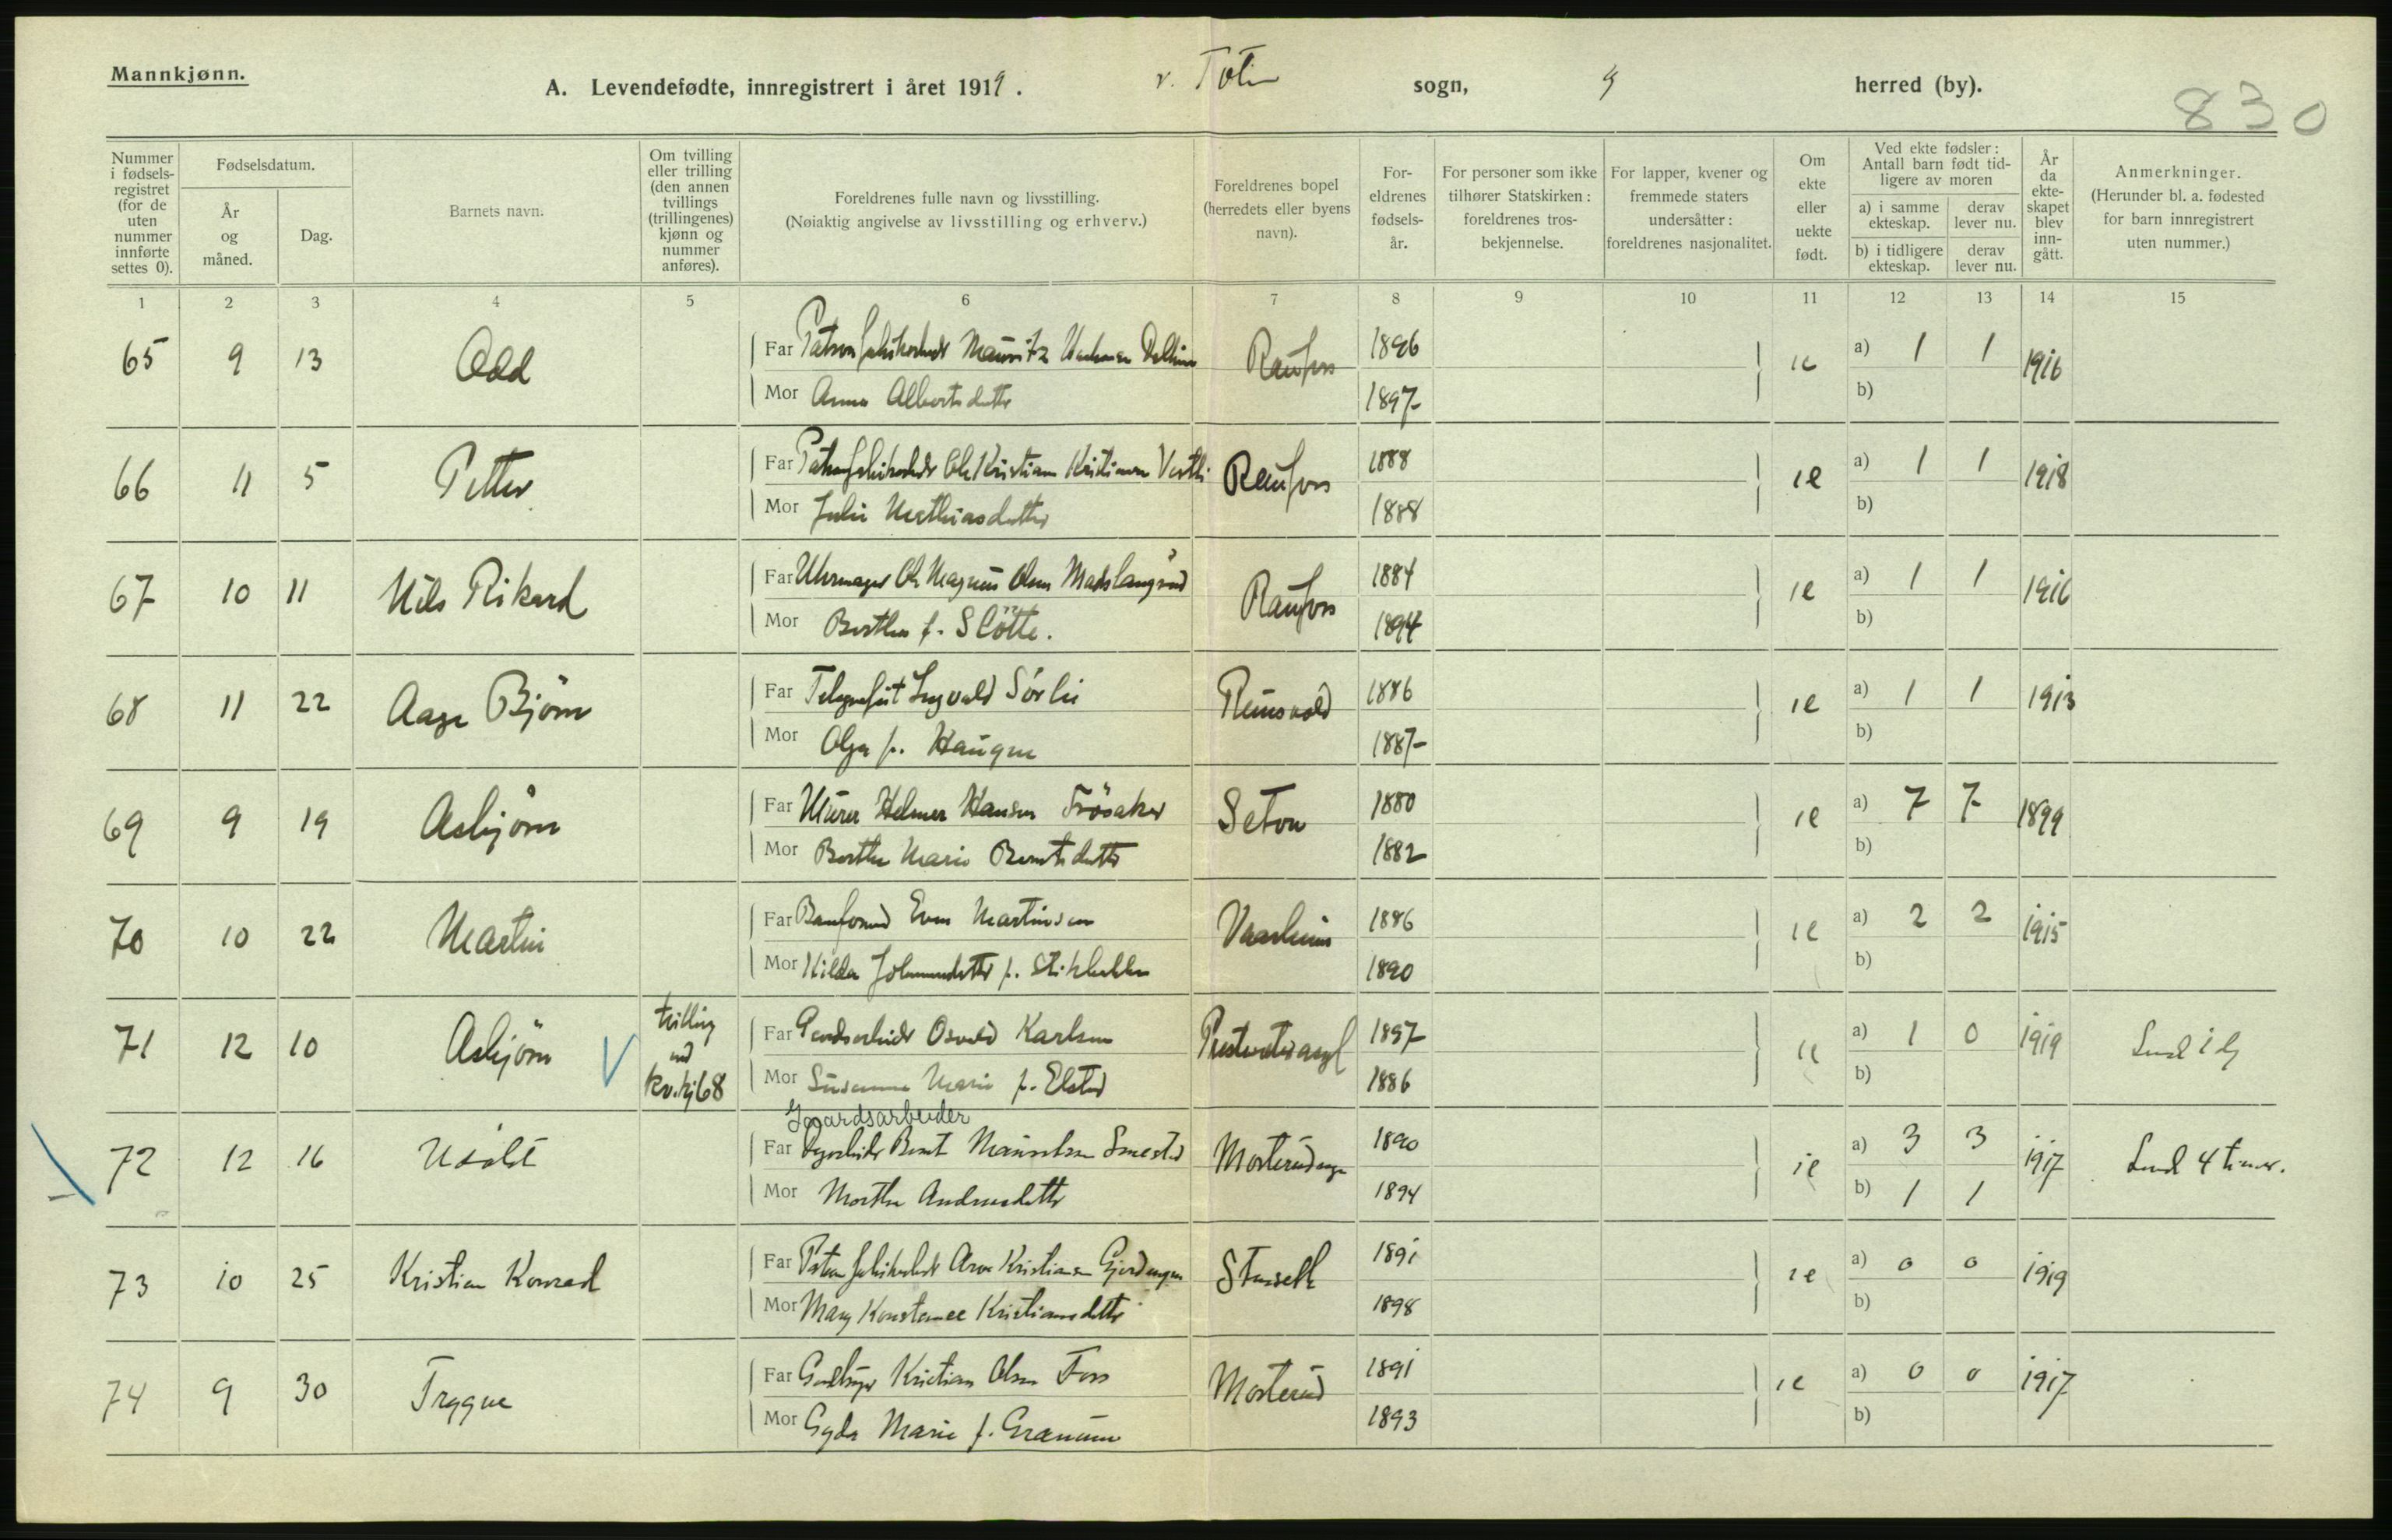 Mannkjønn.
A. Levendefødte, innregistrert i året 1919. v. Toten sogn, herred (by).
830
Nummer i fødsels-registret (for de uten nummer innførte settes 0).
Fødselsdatum.
År og måned.
Dag.
Barnets navn.
Om tvilling eller trilling (den annen tvillings (trillingenes) kjønn og nummer anføres).
Foreldrenes fulle navn og livsstilling.
(Nøiaktig angivelse av livsstilling og erhverv.)
Foreldrenes bopel (herredets eller byens navn).
For-eldrenes fødsels-år.
For personer som ikke tilhører Statskirken: foreldrenes tros-bekjennelse.
For lapper, kvener og fremmede staters undersåtter: foreldrenes nasjonalitet.
Om ekte eller uekte født.
Ved ekte fødsler: Antall barn født tid-ligere av moren
a) i samme ekteskap.
derav lever nu.
b) i tidligere ekteskap.
derav lever nu.
År da ekte-skapet blev inn-gått.
Anmerkninger.
(Herunder bl. a. fødested for barn innregistrert uten nummer.)
1 2 3 4 5 6 7 8 9 10 11 12 13 14 15
65 9 13 Odd Far Mauritz Raufoss 1896 ie a) 1 1 1916
Mor Anna Albertsdatter 1897 b)
66 11 5 Petter Far Ole Kristian Kristiansen Raufoss 1888 ie a) 1 1 1918
Mor Julie Mathiasdatter 1888 b)
67 10 11 Nils Rikard Far Uhrmager Ole Magnus Olsen Raufoss 1884 ie a) 1 1 1916
Mor Berthe f. Slötte. 1894 b)
68 11 22 Aage Björn Far Telegrafist Ingvald Sörlie Reinsvold 1886 ie a) 1 1 1913
Mor Olga f. Haugen 1887 b)
69 9 19 Asbjörn Far Murer Helmer Hansen Frösaker Seton 1880 ie a) 7 7 1899
Mor Berthe Marie Berntsdatter 1882 b)
70 10 22 Martin Far Even Martinsen 1886 ie a) 2 2 1915
Mor Hilda Johannesdatter f. 1890 b)
71 12 10 Asbjörn tvilling med kv.kj 68 Far Osvald Karlsen 1897 ie a) 1 0 1919
Mor Susanne Marie f. Elstad 1886 b)
Jordarbeider
72 12 16 Udöbt Far Bernt 1890 ie a) 3 3 1917 Levde 4 timer.
Mor Marthe Andreasdatter 1894 b) 1 1
73 10 25 Kristian Konrad Far Arne Kristiansen 1891 ie a) 0 0 1919
Mor Mary Konstanse Kristiansdatter 1898 b)
74 9 30 Trygve Far Kristian Olsen Foss Mosterud 1891 ie a) 0 0 1917
Mor Gyda Marie f. Granum 1893 b)